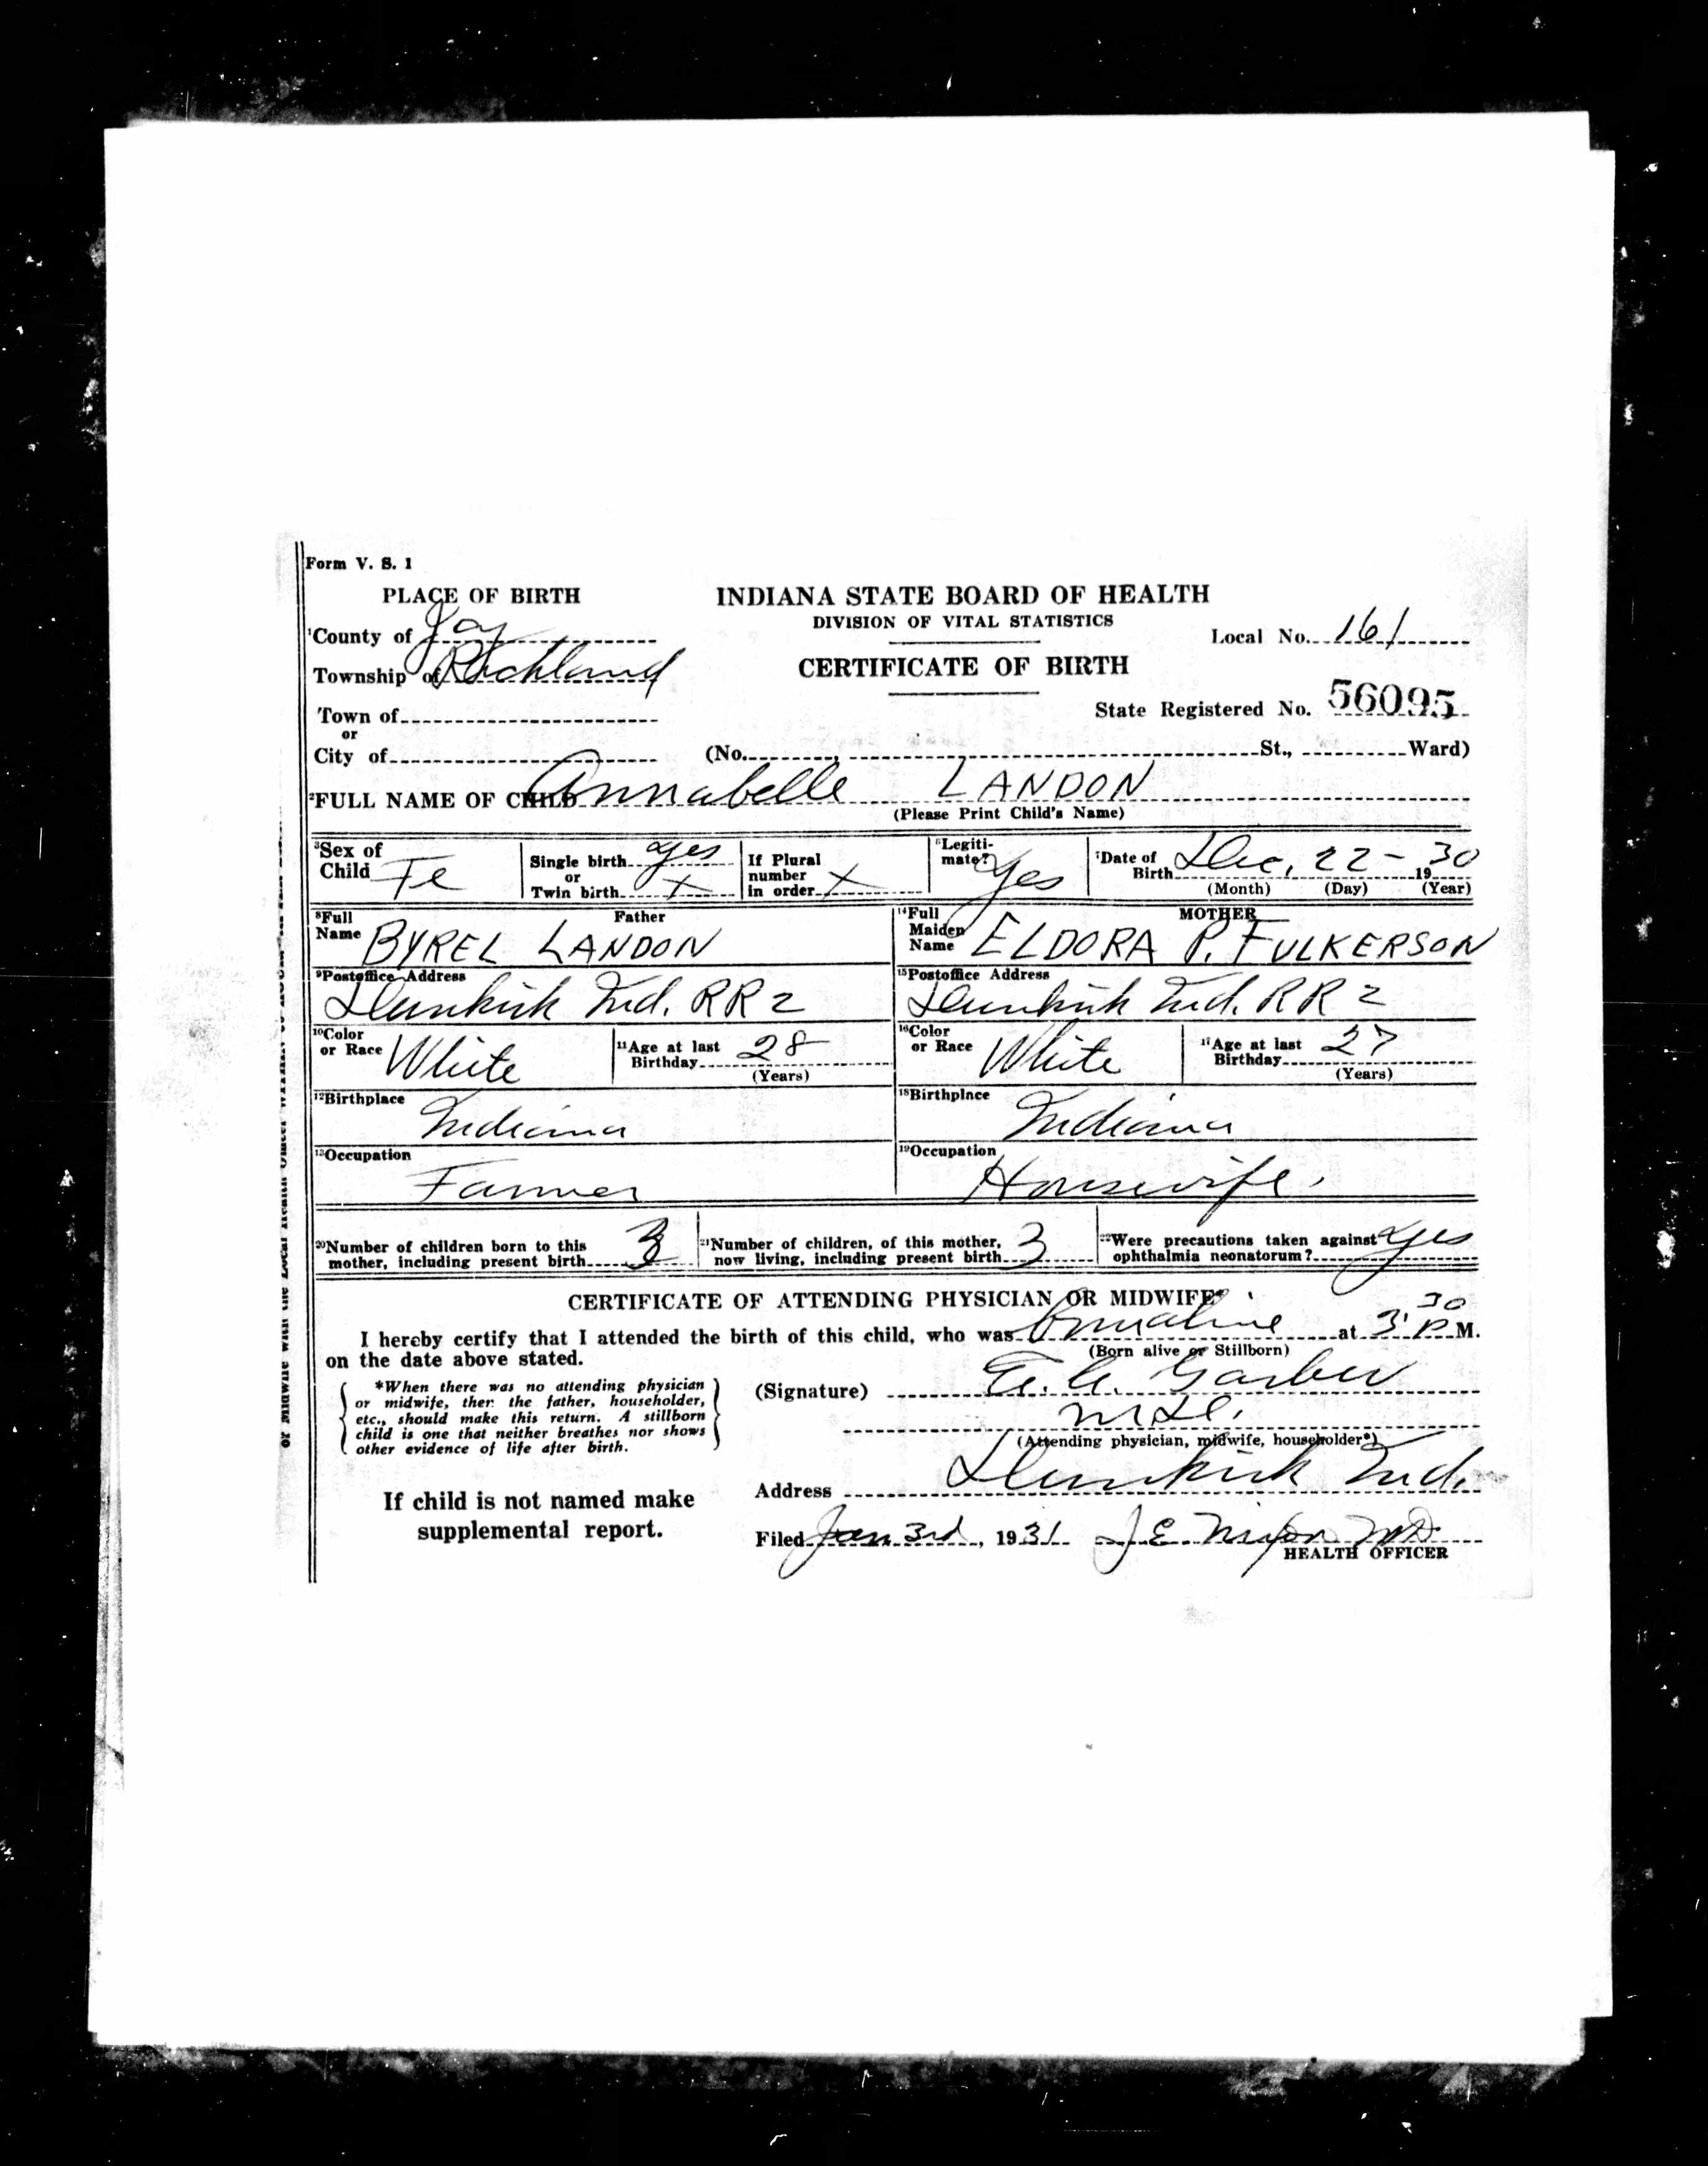 Form V. S. 1
PLACE OF BIRTH
INDIANA STATE BOARD OF HEALTH
DIVISION OF VITAL STATISTICS
1County of Jay
Local No. 161
Township of Richland
CERTIFICATE OF BIRTH
State Registered No. 56095
Town of
or
City of (No. St., Ward)
2FULL NAME OF CHILD Annabelle LANDON
(Please Print Child's Name)
3Sex of Child Fe
Single birth yes
or
Twin birth x
If Plural number in order x
6Legiti-mate? Yes
7Date of Birth Dec, 22 - 1930
(Month) (Day) (Year)
8Full Name Father
BYREL LANDON
14Full Maiden Name MOTHER
ELDORA P. FULKERSON
9Postoffice Address
Dunkirk Ind. RR 2
15Postoffice Address
Dunkirk Ind. RR 2
10Color or Race White
11Age at last Birthday 28
(Years)
16Color or Race White
17Age at last Birthday 27
(Years)
12Birthplace
Indiana
18Birthplace
Indiana
13Occupation
Farmer
19Occupation
Housewife.
20Number of children born to this
mother, including present birth 3
21Number of children, of this mother,
now living, including present birth 3
22Were precautions taken against
ophthalmia neonatorum? yes
CERTIFICATE OF ATTENDING PHYSICIAN OR MIDWIFE*
I hereby certify that I attended the birth of this child, who was at 3:30 P. M.
(Born alive or Stillborn)
on the date above stated.
*When there was no attending physician
or midwife, then the father, householder,
etc., should make this return. A stillborn
child is one that neither breathes nor shows
other evidence of life after birth.
(Signature) Garber
M.D.
(Attending physician, midwife, householder*)
Address Dunkirk Ind.
If child is not named make
supplemental report.
Filed Jan 3rd, 1931 J E Nixon MD
HEALTH OFFICER